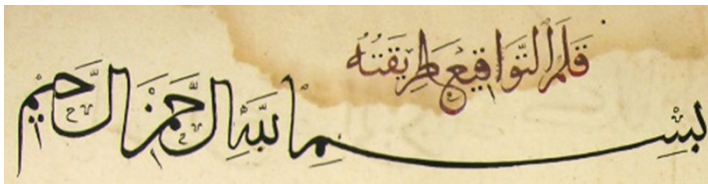 قَلَمُ التَّوَاقِيعِ طَرِيقَتُهُ
بِسْمِ اللَّهِ الرَّحْمَنِ الرَّحِيمِ